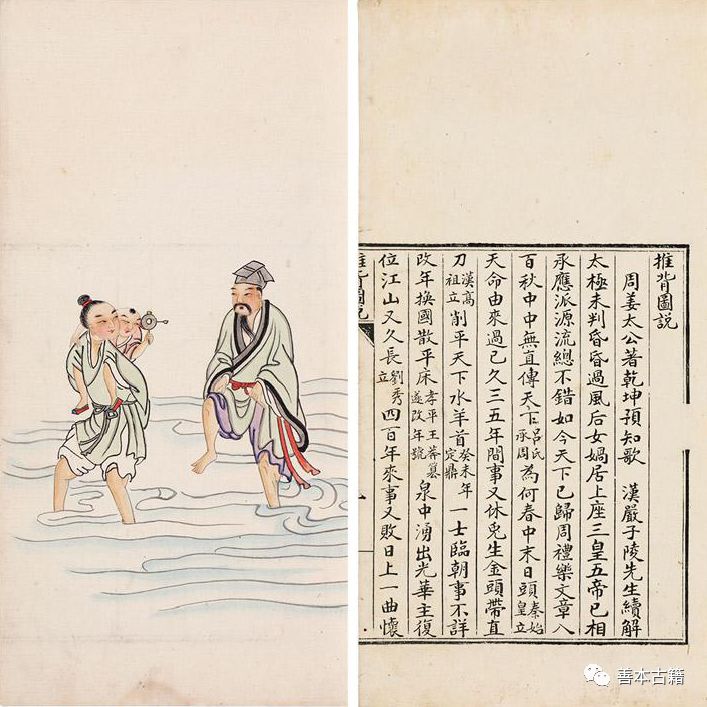 推背圖說
周姜太公著乾坤預知歌 漢嚴子陵先生續解
太極未判昏昏過風后女媧居上座三皇五帝已相
承應派源流總不錯如今天下已歸周禮樂文章八
百秋中中無直傳天下呂氏承周為何春中末日頭秦始皇立
天命由來過已久三五年間事又休兎生金頭帶直
刀漢高祖立削平天下水羊首癸未年定鼎一士臨朝事不詳
改年換國散平床孝平王莽篡遂改年號泉中湧出光華主復
位江山又久長劉秀立四百年來事又敗日上一曲懷
善本古籍